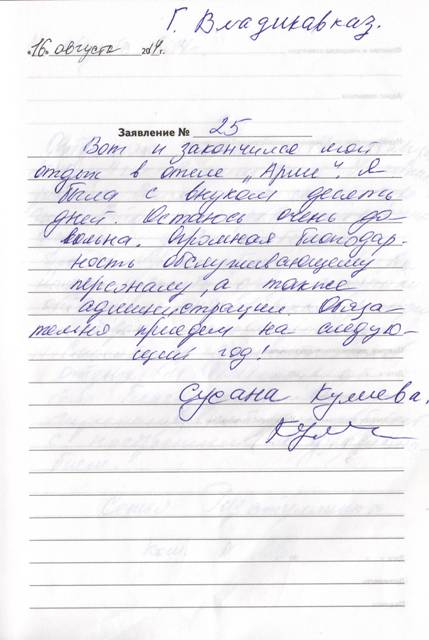 г. Владикавказ.
«16» августа 2014 г.
Заявление № 25
Вот и закончился мой
отдых в отеле „Арли“. Я
была с внуком десять
дней. Остаюсь очень до-
вольна. Огромная благодар-
ность обслуживающему
персоналу, а также
администрации. Обяза-
тельно приедем на следую-
щий год!
Сусана Кулиева.